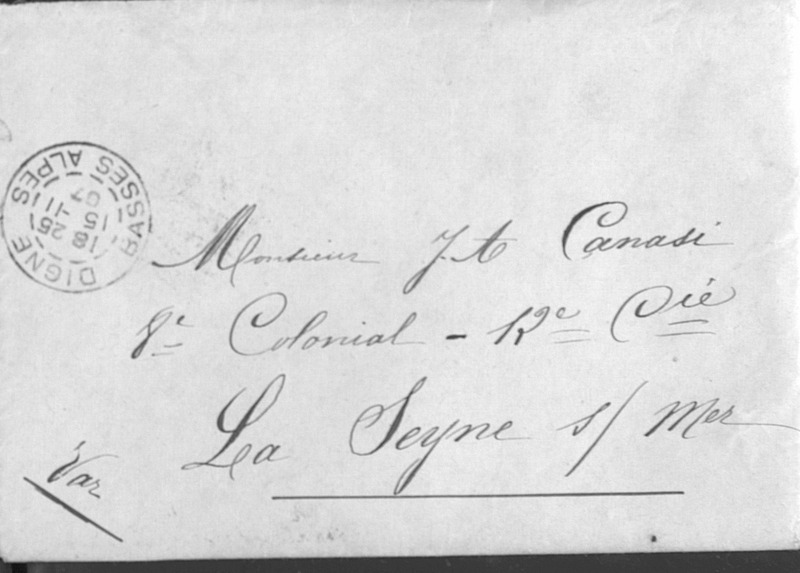 DIGNE
BASSES ALPES
18 25
15 -11
07
Monsieur J. A Canasi
8e Colonial - 12e Cie
La Seyne s/ Mer
Var